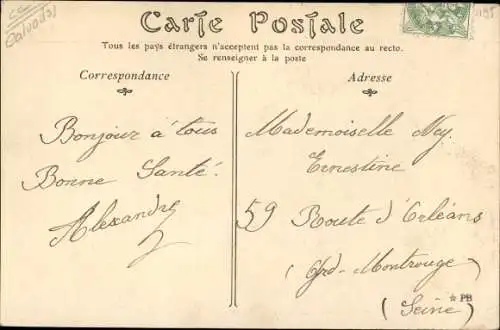 CC
Calvados
Carte Postale
Tous les pays étrangers n'acceptent pas la correspondance au recto.
Se renseigner à la poste
Correspondance
Adresse
Bonjour à tous
Bonne Santé.
Alexandre
Mademoiselle Ney
Ernestine
59 Route d'Orléans
(Grd-Montrouge
(Seine)
☆ PB